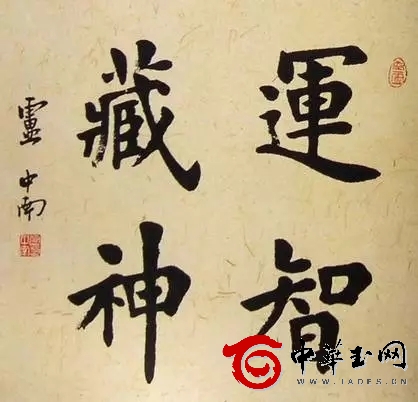 運智
藏神
盧中南
中華玉网
WWW.IADES.CN